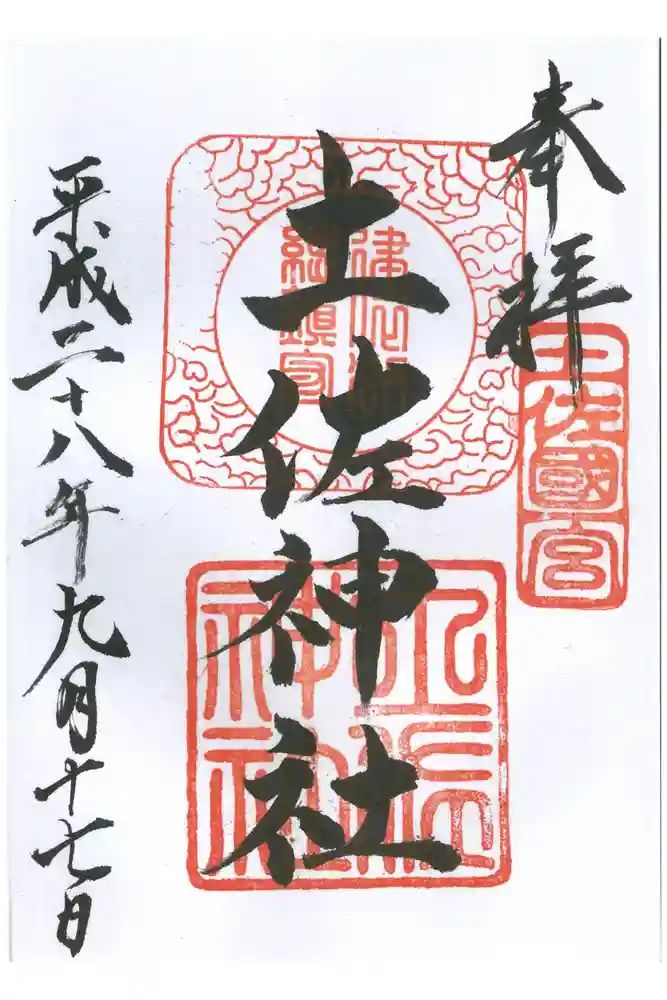 奉拝
土佐國宮
土佐神社
土佐神社
平成二十八年九月十七日